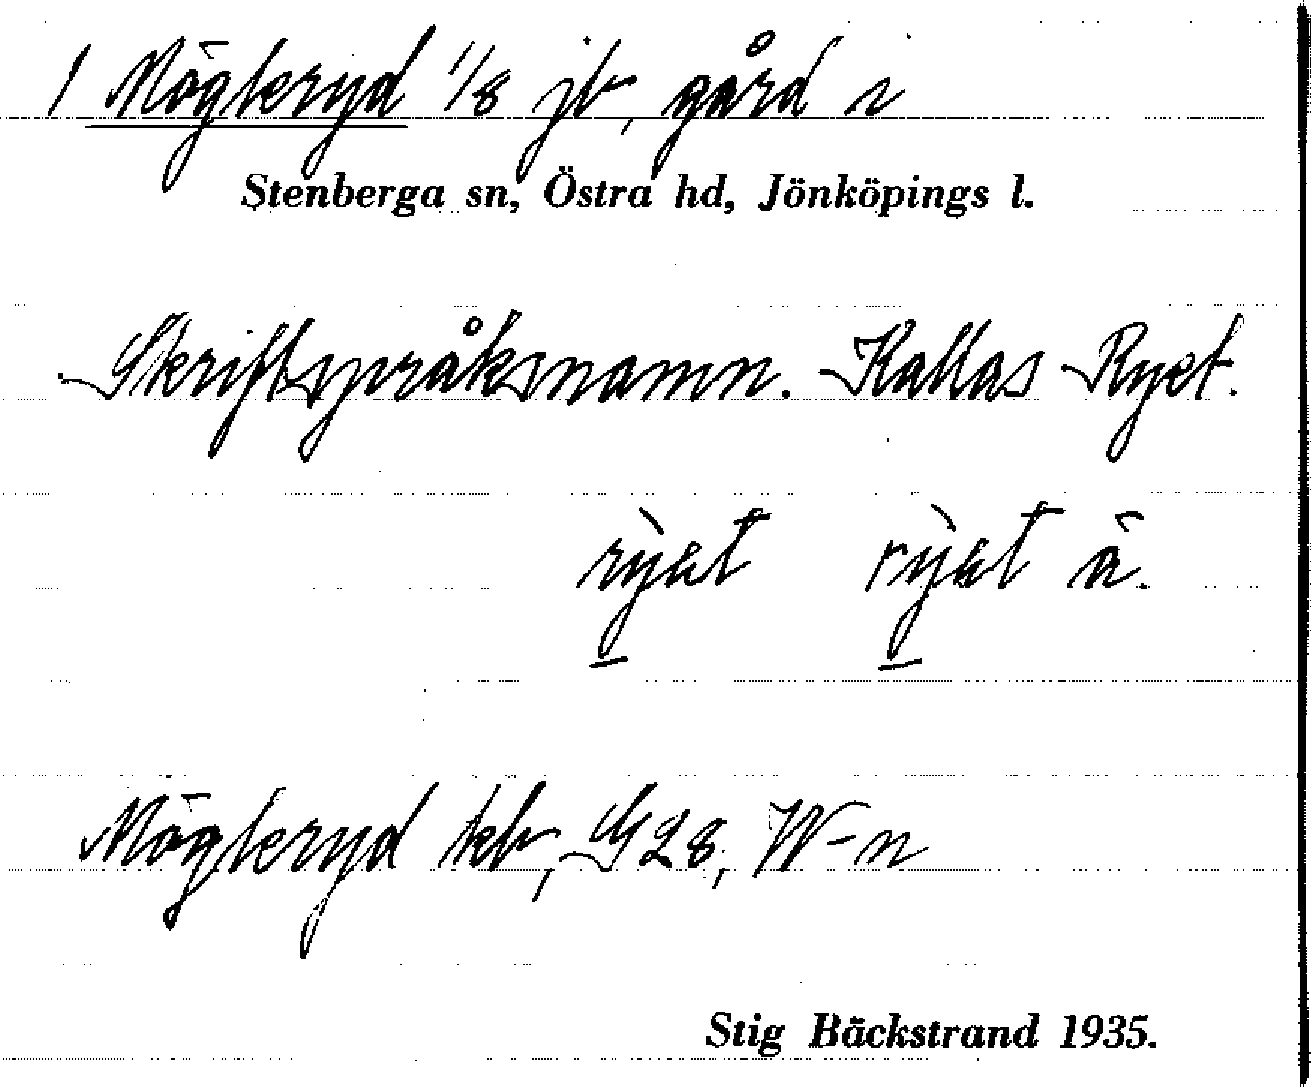 1 Mögleryd 1/8 jb, gård i
Stenberga sn, Östra hd, Jönköpings l.
Skriftspråksnamn. Kallas Ryet.
rỳet rỳet ä.
Mögleryd kb, G28, W-n
Stig Bäckstrand 1935.